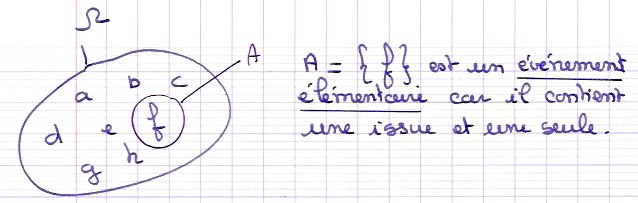 Ω
A
b
c
a
d
e
f
h
g
A = {f} est un événement
élémentaire car il contient
une issue et une seule.